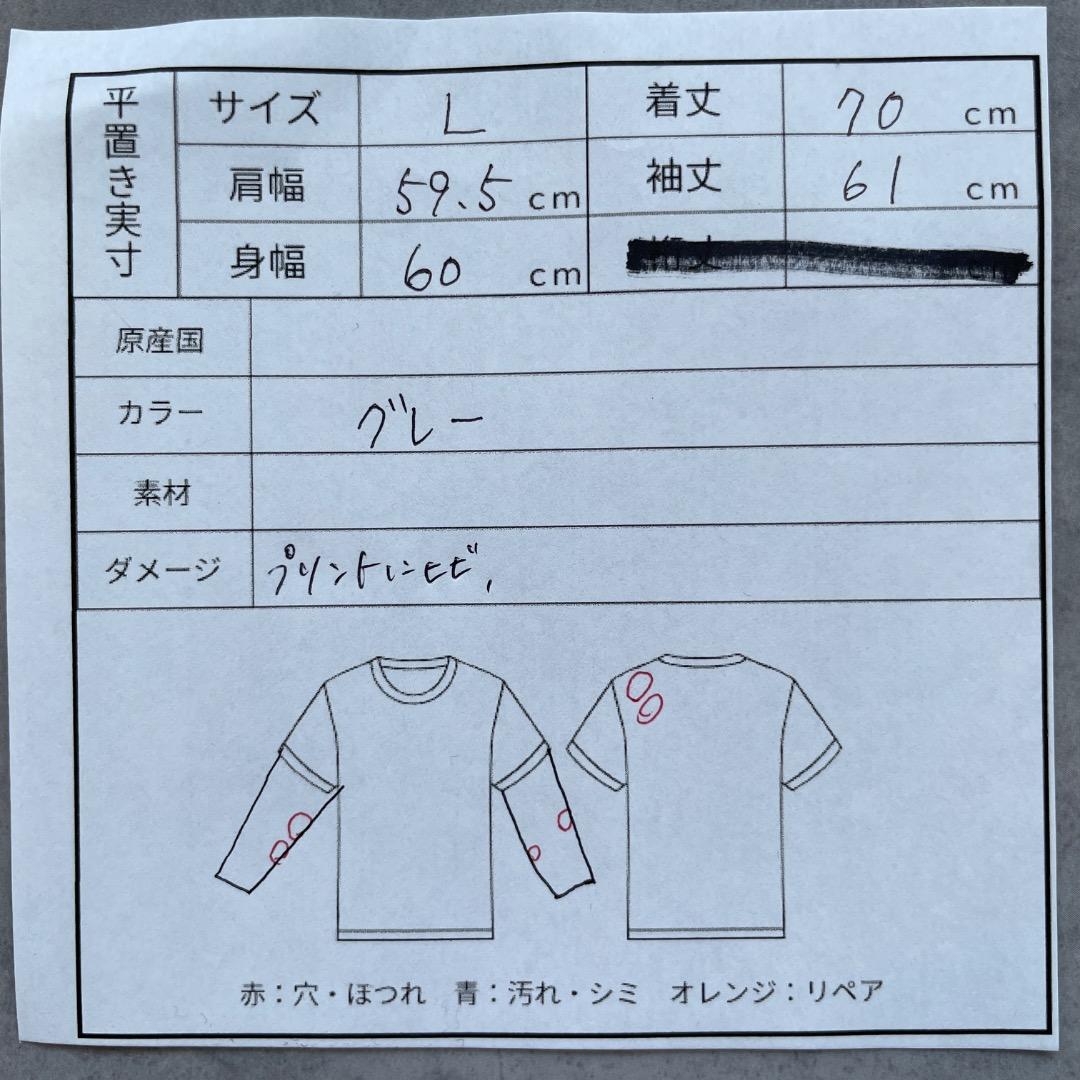 平置き実寸
サイズ L 着丈 70 cm
肩幅 59.5 cm 袖丈 61 cm
身幅 60 cm
原産国
カラー グレー
素材
ダメージ プリントにヒビ,
赤：穴・ほつれ 青：汚れ・シミ オレンジ：リペア